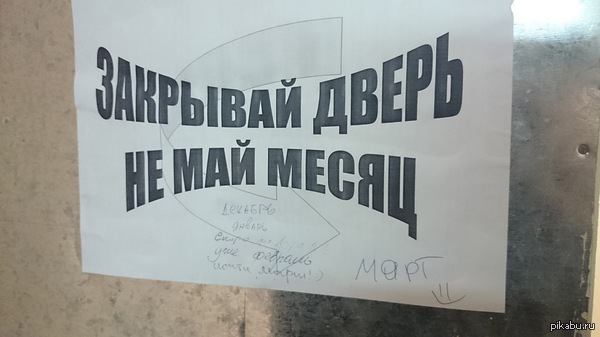 ЗАКРЫВАЙ ДВЕРЬ
НЕ МАЙ МЕСЯЦ
ДЕКАБРЬ
январь
уже февраль
почти
МАРТ
pikabu.ru